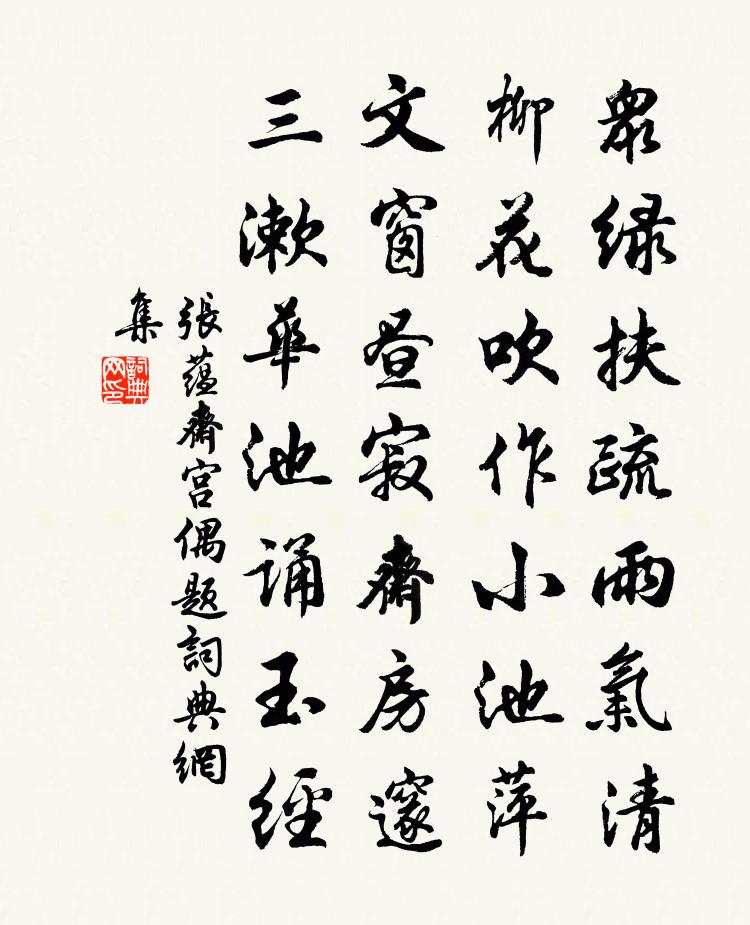 眾緑扶疏雨氣清
柳花吹作小池萍
文窗晝寂齋房邃
三漱華池誦玉經
張蘊齋宮偶題詞典網
集
詞典網印